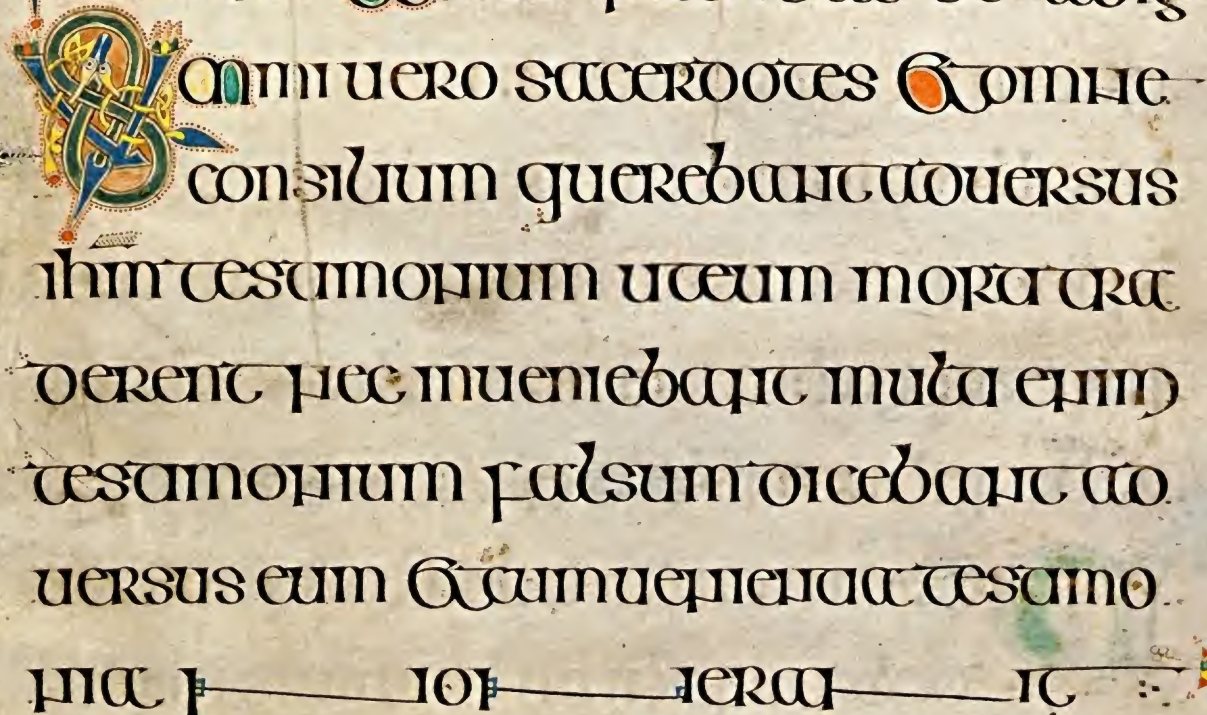 Summi uero sacerdotes et omne
consilium querebant aduersus
ihm testimonium uteum morti tra
derent nec inueniebant multi enim
testimonium falsum dicebant ad
uersus eum et cumuenientia testimo
nia non erant